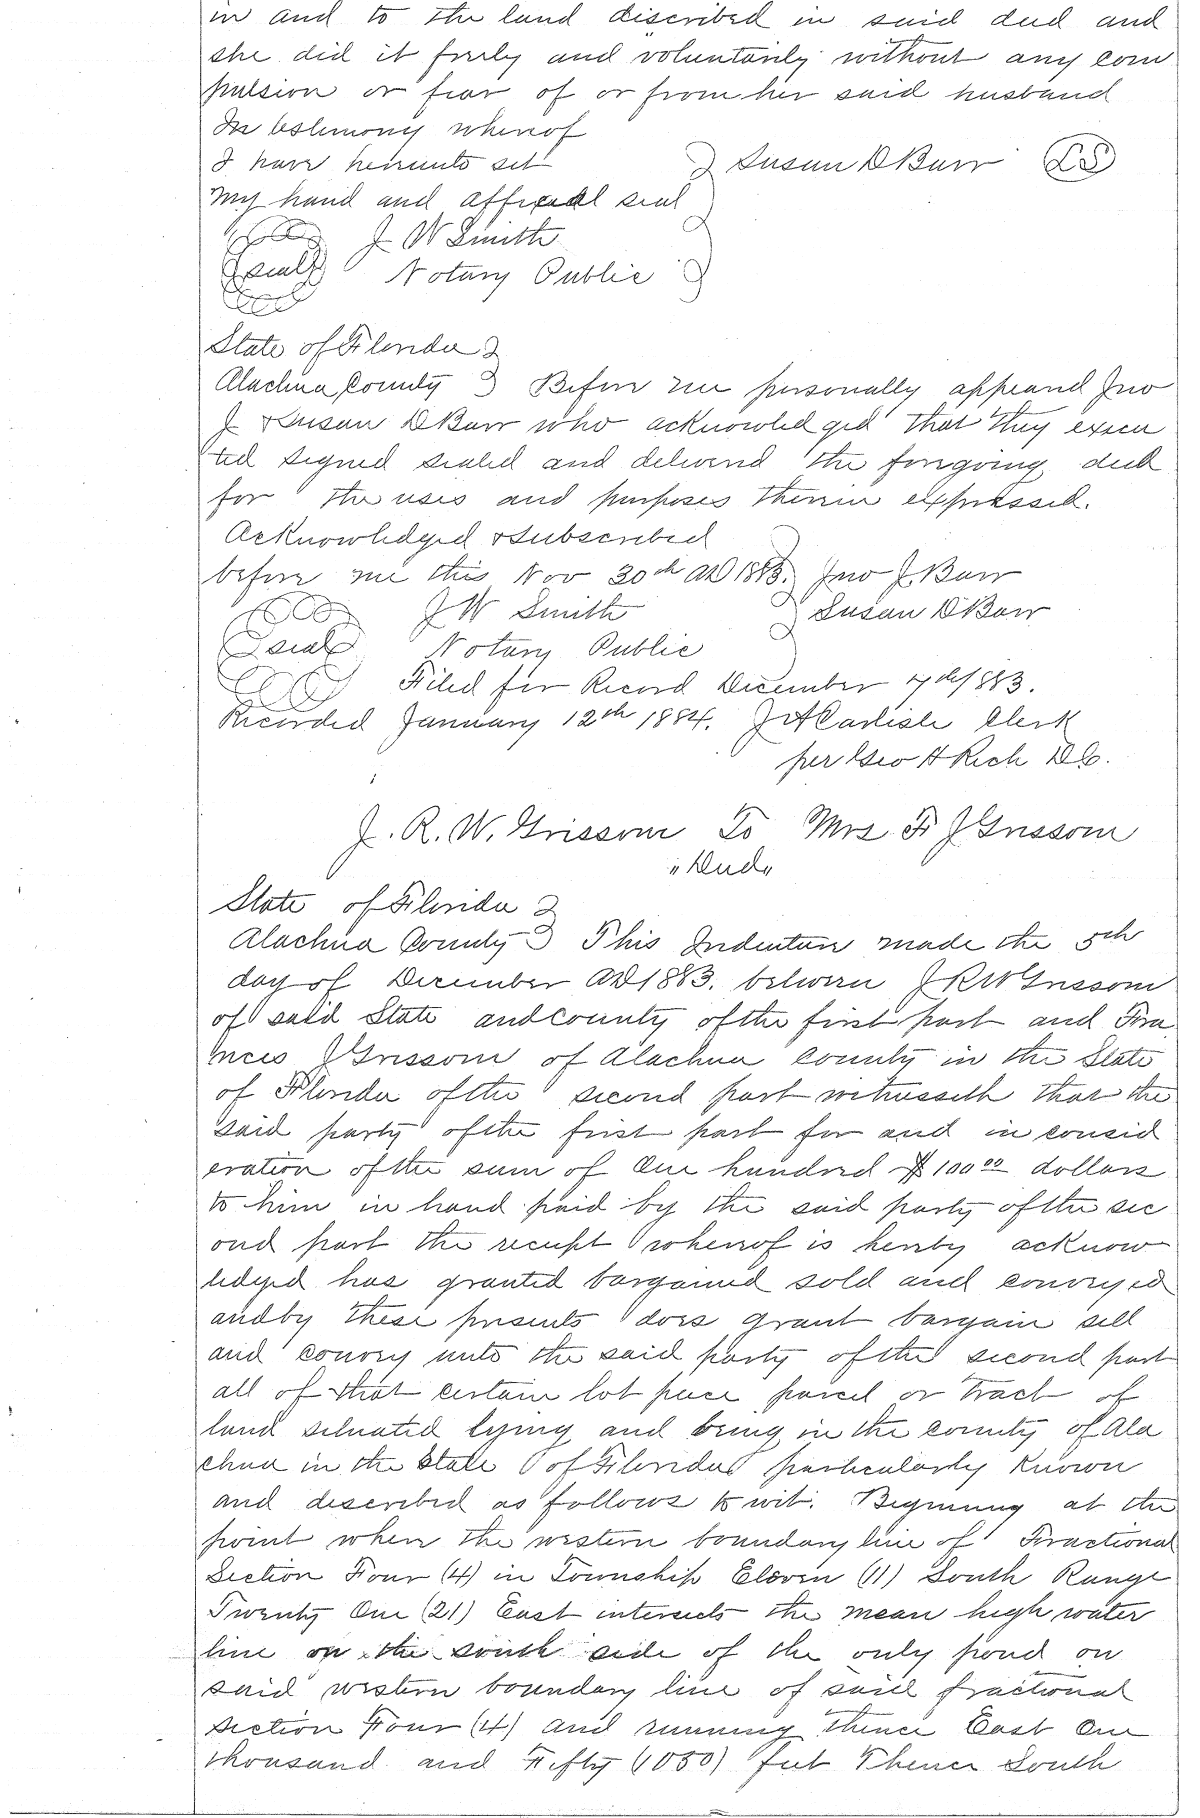 in and to the land discribed in said deed and
she did it freely and voluntarily without any com
pulsion or fear of or from her said husband
In testimony whereof
I have hereunto set } Susan D Barr (LS)
my hand and official seal
J W Smith
(seal) Notary Public
State of Florida }
Alachua County } Before me personally appeared Jno
J & Susan D Barr who acknowledged that they execu
ted signed sealed and delivered the foregoing deed
for the uses and purposes therein expressed.
Acknowledged & subscribed
before me this Nov 30th AD 1883. } Jno J. Barr
J W Smith } Susan D Barr
(seal) Notary Public
Filed for Record December 7th 1883.
Recorded January 12th 1884. J A Carlisle Clerk
per Geo H Rich D.C.
J. R. W. Grissom To Mrs F J Grissom
"Deed"
State of Florida }
Alachua County } This Indenture made the 5th
day of December AD 1883. between J R W Grissom
of said State and County of the first part and Fra
nces J Grissom of Alachua County in the State
of Florida of the second part witnesseth that the
said party of the first part for and in consid
eration of the sum of One hundred $100 00 dollars
to him in hand paid by the said party of the sec
ond part the receipt whereof is hereby acknow
ledged has granted bargained sold and conveyed
and by these presents does grant bargain sell
and convey unto the said party of the second part
all of that certain lot piece parcel or tract of
land situated lying and being in the county of Ala
chua in the State of Florida particularly known
and described as follows to wit. Beginning at the
point where the western boundary line of Fractional
Section Four (4) in Township Eleven (11) South Range
Twenty One (21) East intersects the mean high water
line on the south side of the only pond on
said western boundary line of said fractional
Section Four (4) and running thence East One
thousand and Fifty (1050) feet Thence South